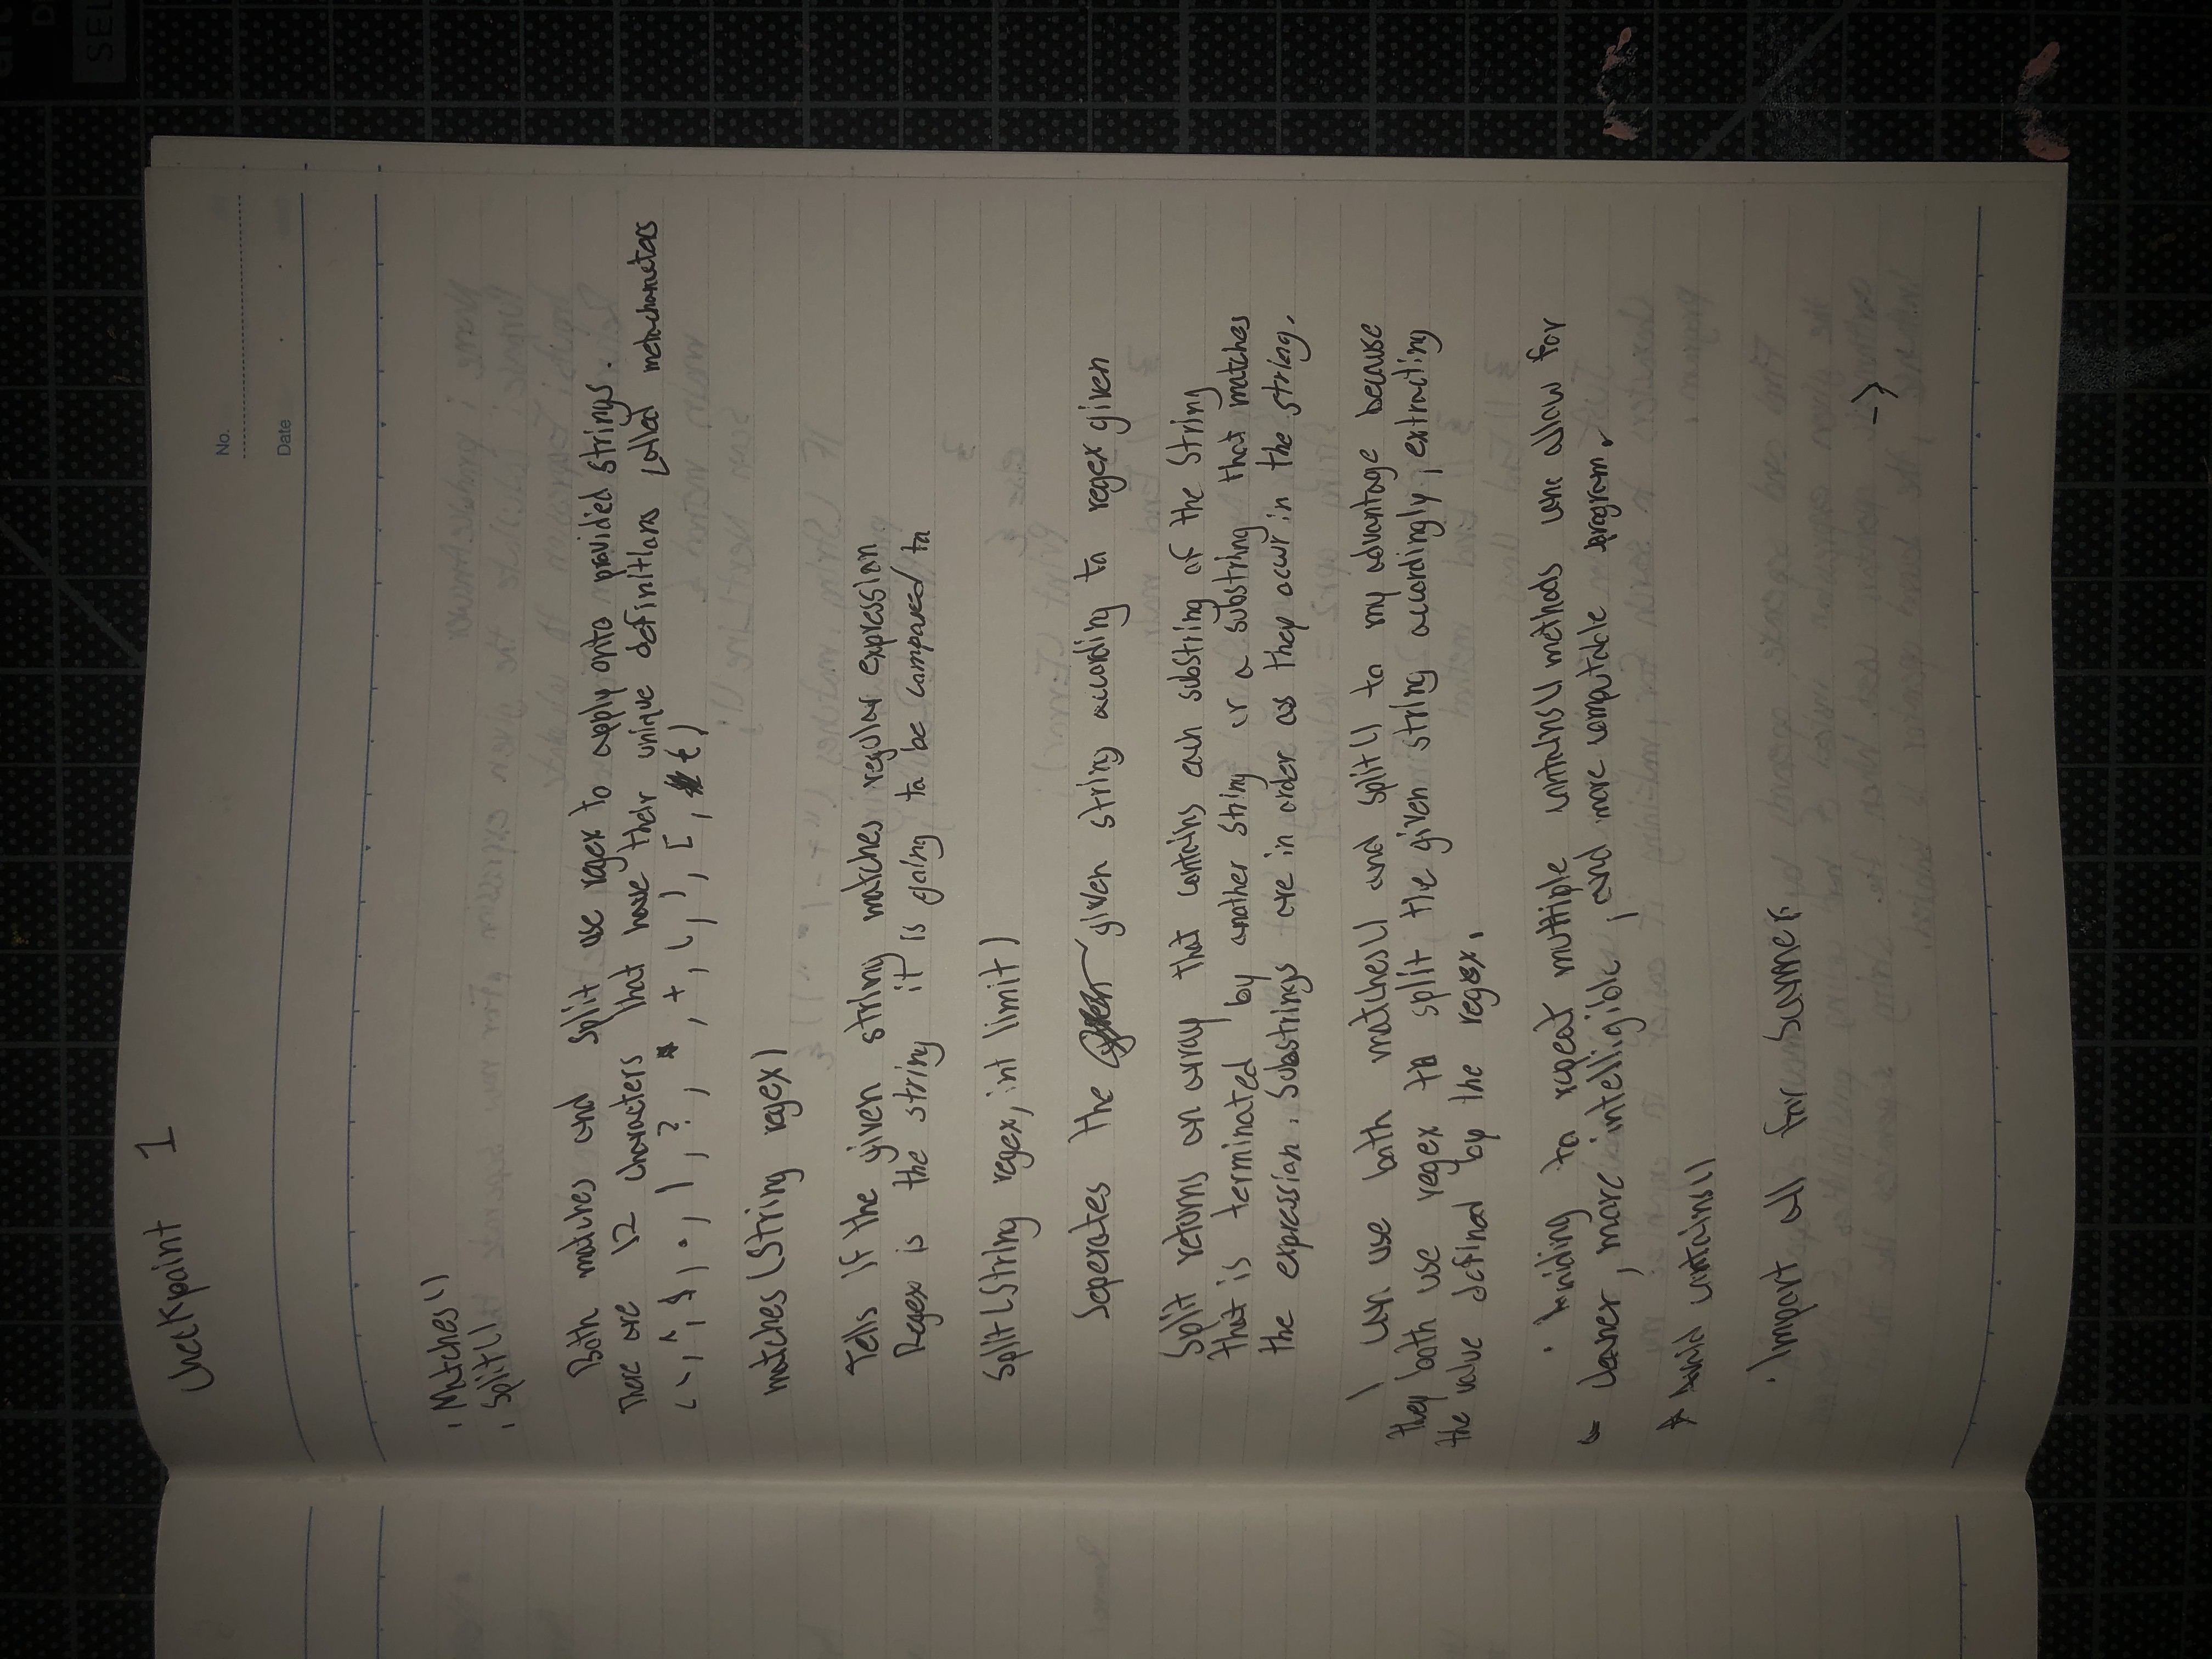 Checkpoint 1
No.
Date
. Matches()
. Split()
Both matches and split use regex to apply onto provided strings.
There are 12 characters that have their unique definitions called metacharacters
(\, ^, $, ., |, ?, *, +, (, ), [, {)
matches (String regex)
Tells if the given string matches regular expression
Regex is the string it is going to be compared to
Split(String regex, int limit)
Seperates the given string according to regex given
Split returns an array that contains each substring of the String
that is terminated by another string or a substring that matches
the expression. Substrings are in order as they occur in the string.
I can use both matches() and split() to my advantage because
they both use regex to split the given string accordingly, extracting
the value defined by the regex.
to repeat multiple contains() methods can allow for
cleaner, more intelligible, and more computable program.
* Avoid contains()
. Import all for Scanner.
->